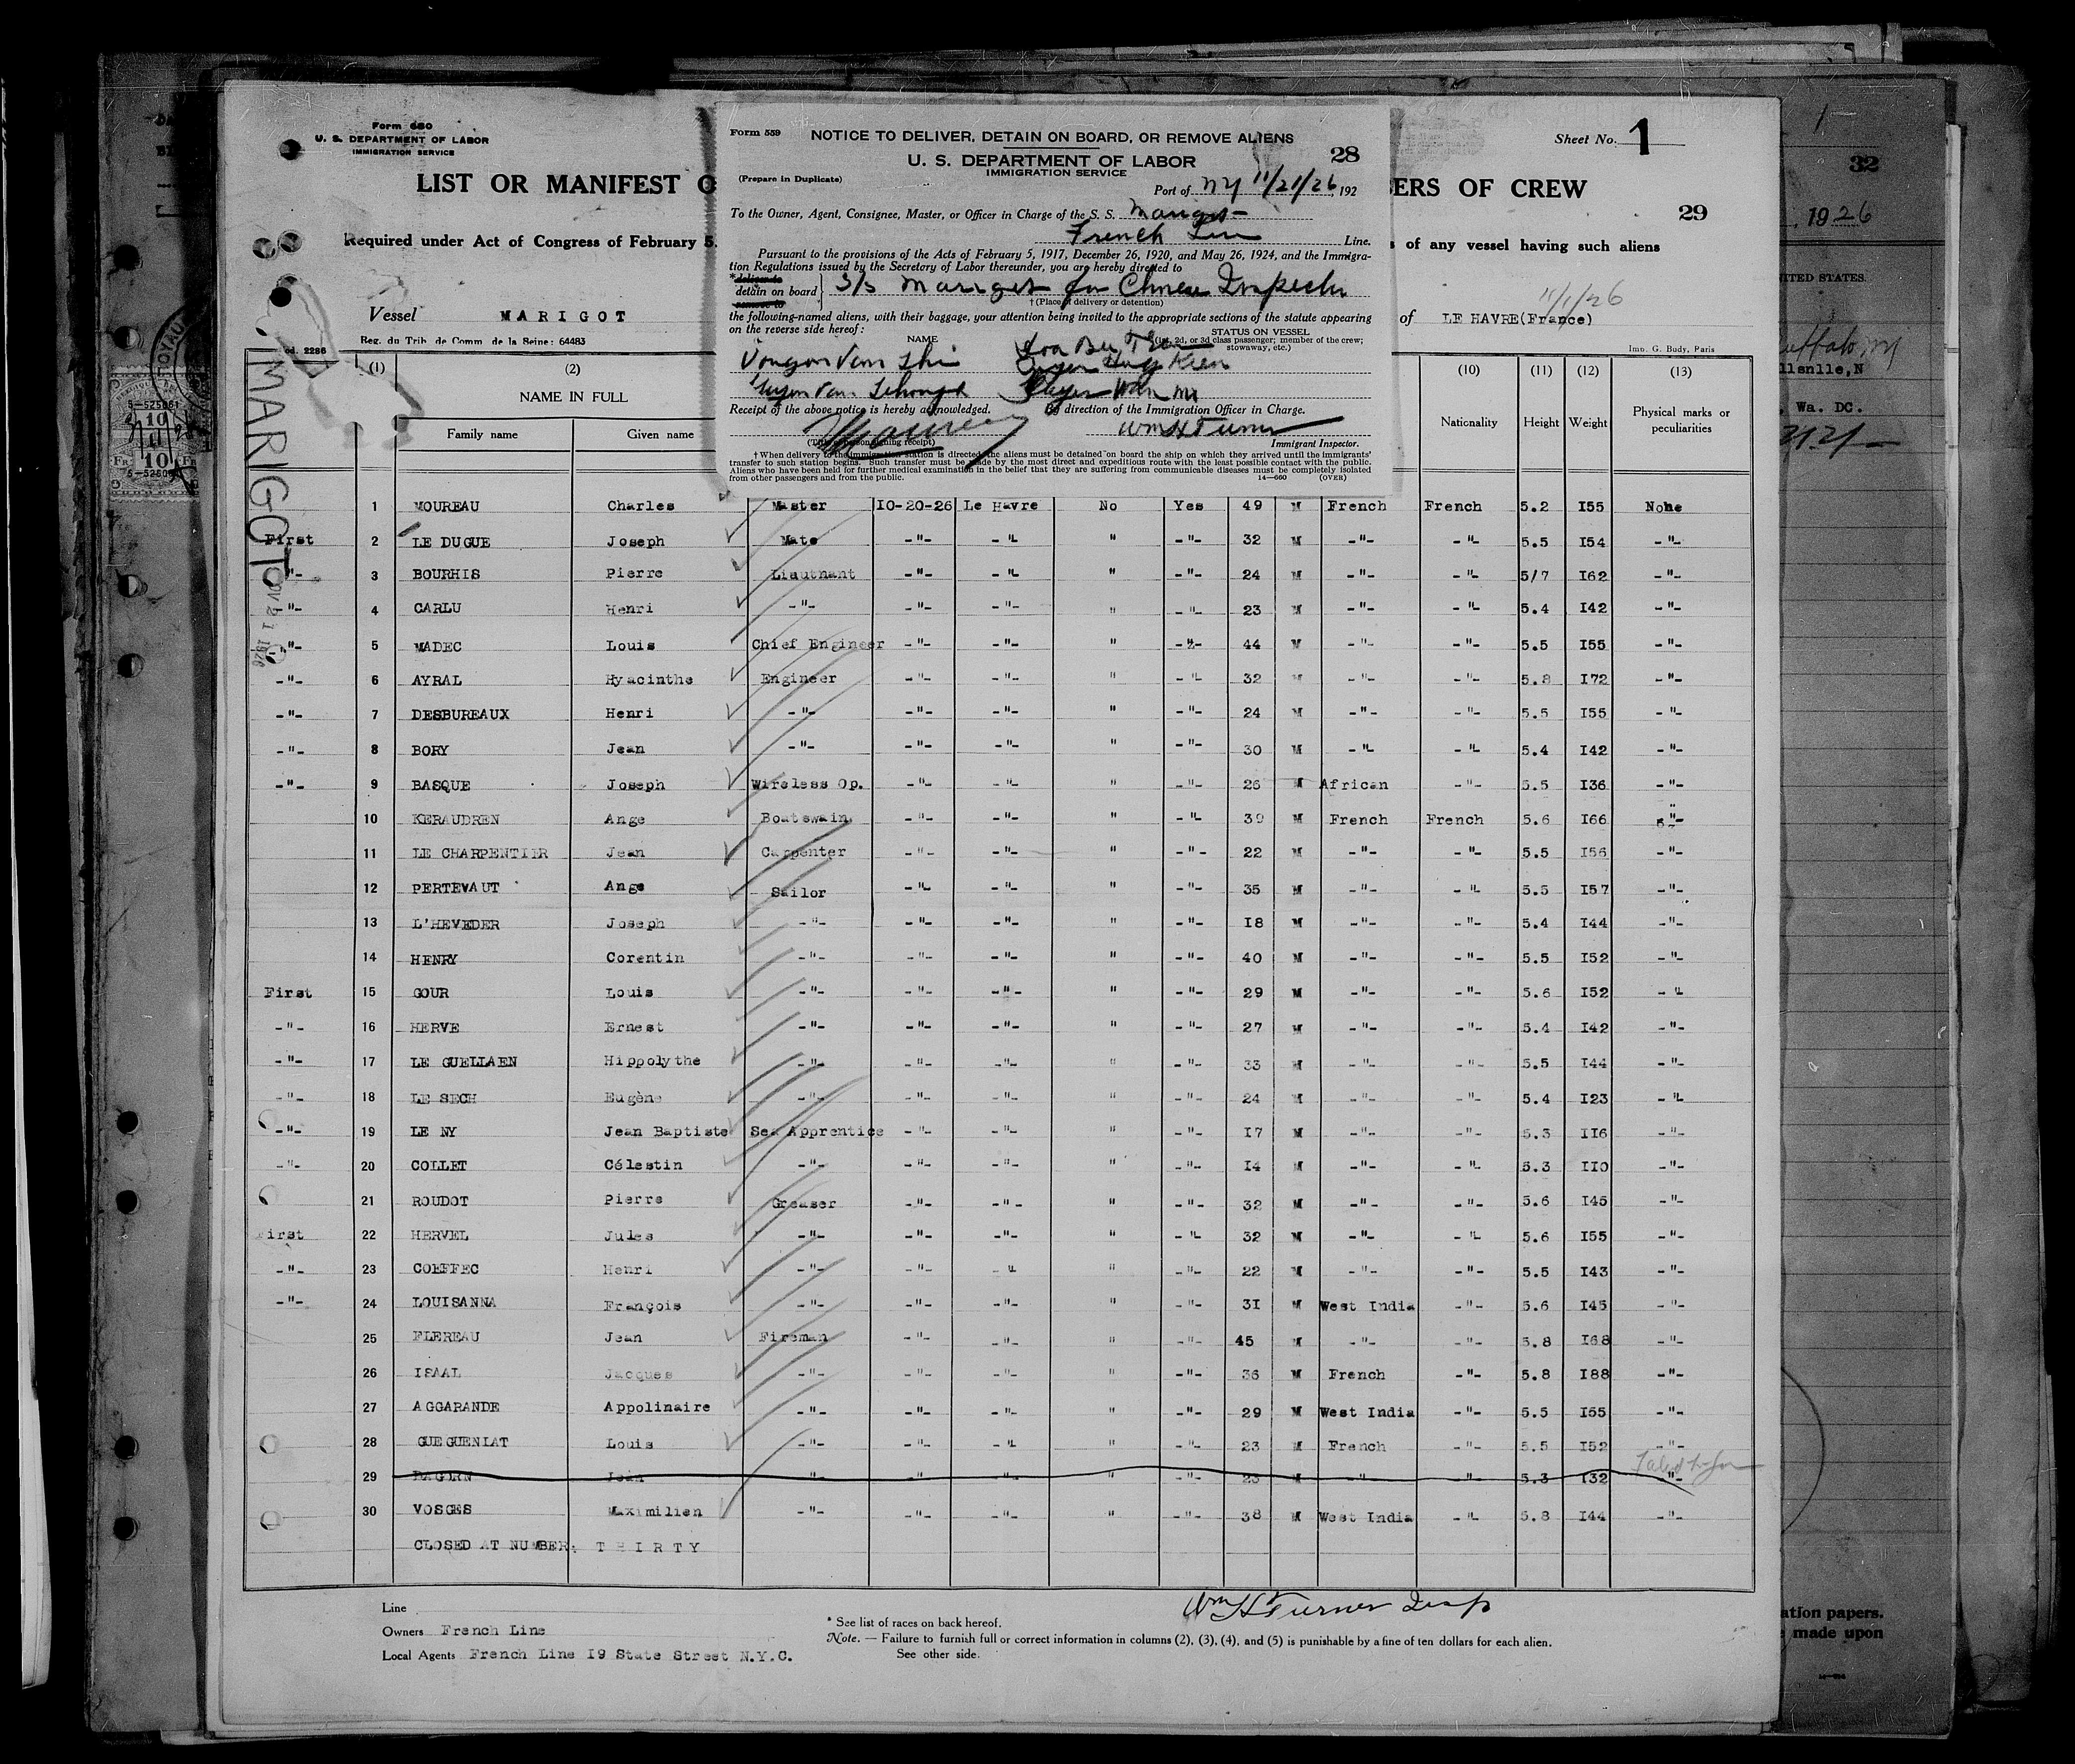 Form 680
U. S. DEPARTMENT OF LABOR
IMMIGRATION SERVICE
LIST OR MANIFEST O
ERS OF CREW
Sheet No. 1
29
Required under Act of Congress of February 5,
s of any vessel having such aliens
Vessel MARIGOT
of LE HAVRE(France)
11/1/26
Reg. du Trib. de Comm. de la Seine: 64483
Imp. G. Budy, Paris
od. 2286
Form 559
NOTICE TO DELIVER, DETAIN ON BOARD, OR REMOVE ALIENS
U. S. DEPARTMENT OF LABOR
IMMIGRATION SERVICE
28
(Prepare in Duplicate)
Port of NY 11/21/26, 192
To the Owner, Agent, Consignee, Master, or Officer in Charge of the S. S. Marigot
French Line Line.
Pursuant to the provisions of the Acts of February 5, 1917, December 26, 1920, and May 26, 1924, and the Immigra-
tion Regulations issued by the Secretary of Labor thereunder, you are hereby directed to
*deliver to
detain on board } S/S Marigot for Chinese Inspector
remove to
† (Place of delivery or detention)
the following-named aliens, with their baggage, your attention being invited to the appropriate sections of the statute appearing
on the reverse side hereof:
NAME
STATUS ON VESSEL
(1st, 2d, or 3d class passenger; member of the crew;
stowaway, etc.)
Receipt of the above notice is hereby acknowledged.
By direction of the Immigration Officer in Charge.
Wm H Turner
(Title of person signing receipt)
Immigrant Inspector.
† When delivery to the immigration station is directed, the aliens must be detained on board the ship on which they arrived until the immigrants'
transfer to such station begins. Such transfer must be made by the most direct and expeditious route with the least possible contact with the public.
Aliens who have been held for further medical examination in the belief that they are suffering from communicable diseases must be completely isolated
from other passengers and from the public.
14—660 (OVER)
(1) (2) (10) (11) (12) (13)
NAME IN FULL
Family name Given name Nationality Height Weight Physical marks or
peculiarities
1 MOUREAU Charles Master 10-20-26 Le Havre No Yes 49 M French French 5.2 I55 None
First 2 LE DUGUE Joseph Mate -"- -"- " -"- 32 M -"- -"- 5.5 I54 -"-
-"- 3 BOURHIS Pierre Liautnant -"- -"- " -"- 24 M -"- -"- 5/7 I62 -"-
-"- 4 CARLU Henri -"- -"- -"- " -"- 23 M -"- -"- 5.4 I42 -"-
-"- 5 MADEC Louis Chief Engineer -"- -"- " -"- 44 M -"- -"- 5.5 I55 -"-
-"- 6 AYRAL Hyacinthe Engineer -"- -"- " -"- 32 M -"- -"- 5.8 I72 -"-
-"- 7 DESBUREAUX Henri -"- -"- -"- " -"- 24 M -"- -"- 5.5 I55 -"-
-"- 8 BORY Jean -"- -"- -"- " -"- 30 M -"- -"- 5.4 I42 -"-
-"- 9 BASQUE Joseph Wireless Op. -"- -"- " -"- 26 M African -"- 5.5 I36 -"-
10 KERAUDREN Ange Boatswain -"- -"- " -"- 39 M French French 5.6 I66 -"-
11 LE CHARPENTIER Jean Carpenter -"- -"- " -"- 22 M -"- -"- 5.5 I56 -"-
12 PERTEVAUT Ange Sailor -"- -"- " -"- 35 M -"- -"- 5.5 I57 -"-
13 L'HEVEDER Joseph -"- -"- -"- " -"- I8 M -"- -"- 5.4 I44 -"-
14 HENRY Corentin -"- -"- -"- " -"- 40 M -"- -"- 5.5 I52 -"-
First 15 GOUR Louis -"- -"- -"- " -"- 29 M -"- -"- 5.6 I52 -"-
-"- 16 HERVE Ernest -"- -"- -"- " -"- 27 M -"- -"- 5.4 I42 -"-
-"- 17 LE GUELLAEN Hippolythe -"- -"- -"- " -"- 33 M -"- -"- 5.5 I44 -"-
-"- 18 LE SECH Eugène -"- -"- -"- " -"- 24 M -"- -"- 5.4 I23 -"-
-"- 19 LE NY Jean Baptiste Sea Apprentice -"- -"- " -"- I7 M -"- -"- 5.3 II6 -"-
-"- 20 COLLET Célestin -"- -"- -"- " -"- I4 M -"- -"- 5.3 II0 -"-
21 ROUDOT Pierre Greaser -"- -"- " -"- 32 M -"- -"- 5.6 I45 -"-
First 22 HERVEL Jules -"- -"- -"- " -"- 32 M -"- -"- 5.6 I55 -"-
-"- 23 COEFFEC Henri -"- -"- -"- " -"- 22 M -"- -"- 5.5 I43 -"-
-"- 24 LOUISANNA François -"- -"- -"- " -"- 3I M West India -"- 5.6 I45 -"-
25 FLEREAU Jean Fireman -"- -"- " -"- 45 M -"- -"- 5.8 I68 -"-
26 ISAAL Jacques -"- -"- -"- " -"- 36 M French -"- 5.8 I88 -"-
27 AGGARANDE Appolinaire -"- -"- -"- " -"- 29 M West India -"- 5.5 I55 -"-
28 GUEGUENIAT Louis -"- -"- -"- " -"- 23 M French -"- 5.5 I52 -"-
29 Jean " -"- " " -"- 23 M -"- -"- 5.3 I32 -"-
30 VOSGES Maximilien -"- -"- -"- " -"- 38 M West India -"- 5.8 I44 -"-
CLOSED AT NUMBER: THIRTY
MARIGOT
NOV 21 1926
Line
Owners French Line
Local Agents French Line I9 State Street N.Y.C.
* See list of races on back hereof.
Note. — Failure to furnish full or correct information in columns (2), (3), (4), and (5) is punishable by a fine of ten dollars for each alien.
See other side.
Wm H Turner Insp
32
, 1926
ITED STATES.
uffalo, NY
llsnlle, N
, Wa. DC.
ation papers.
e made upon